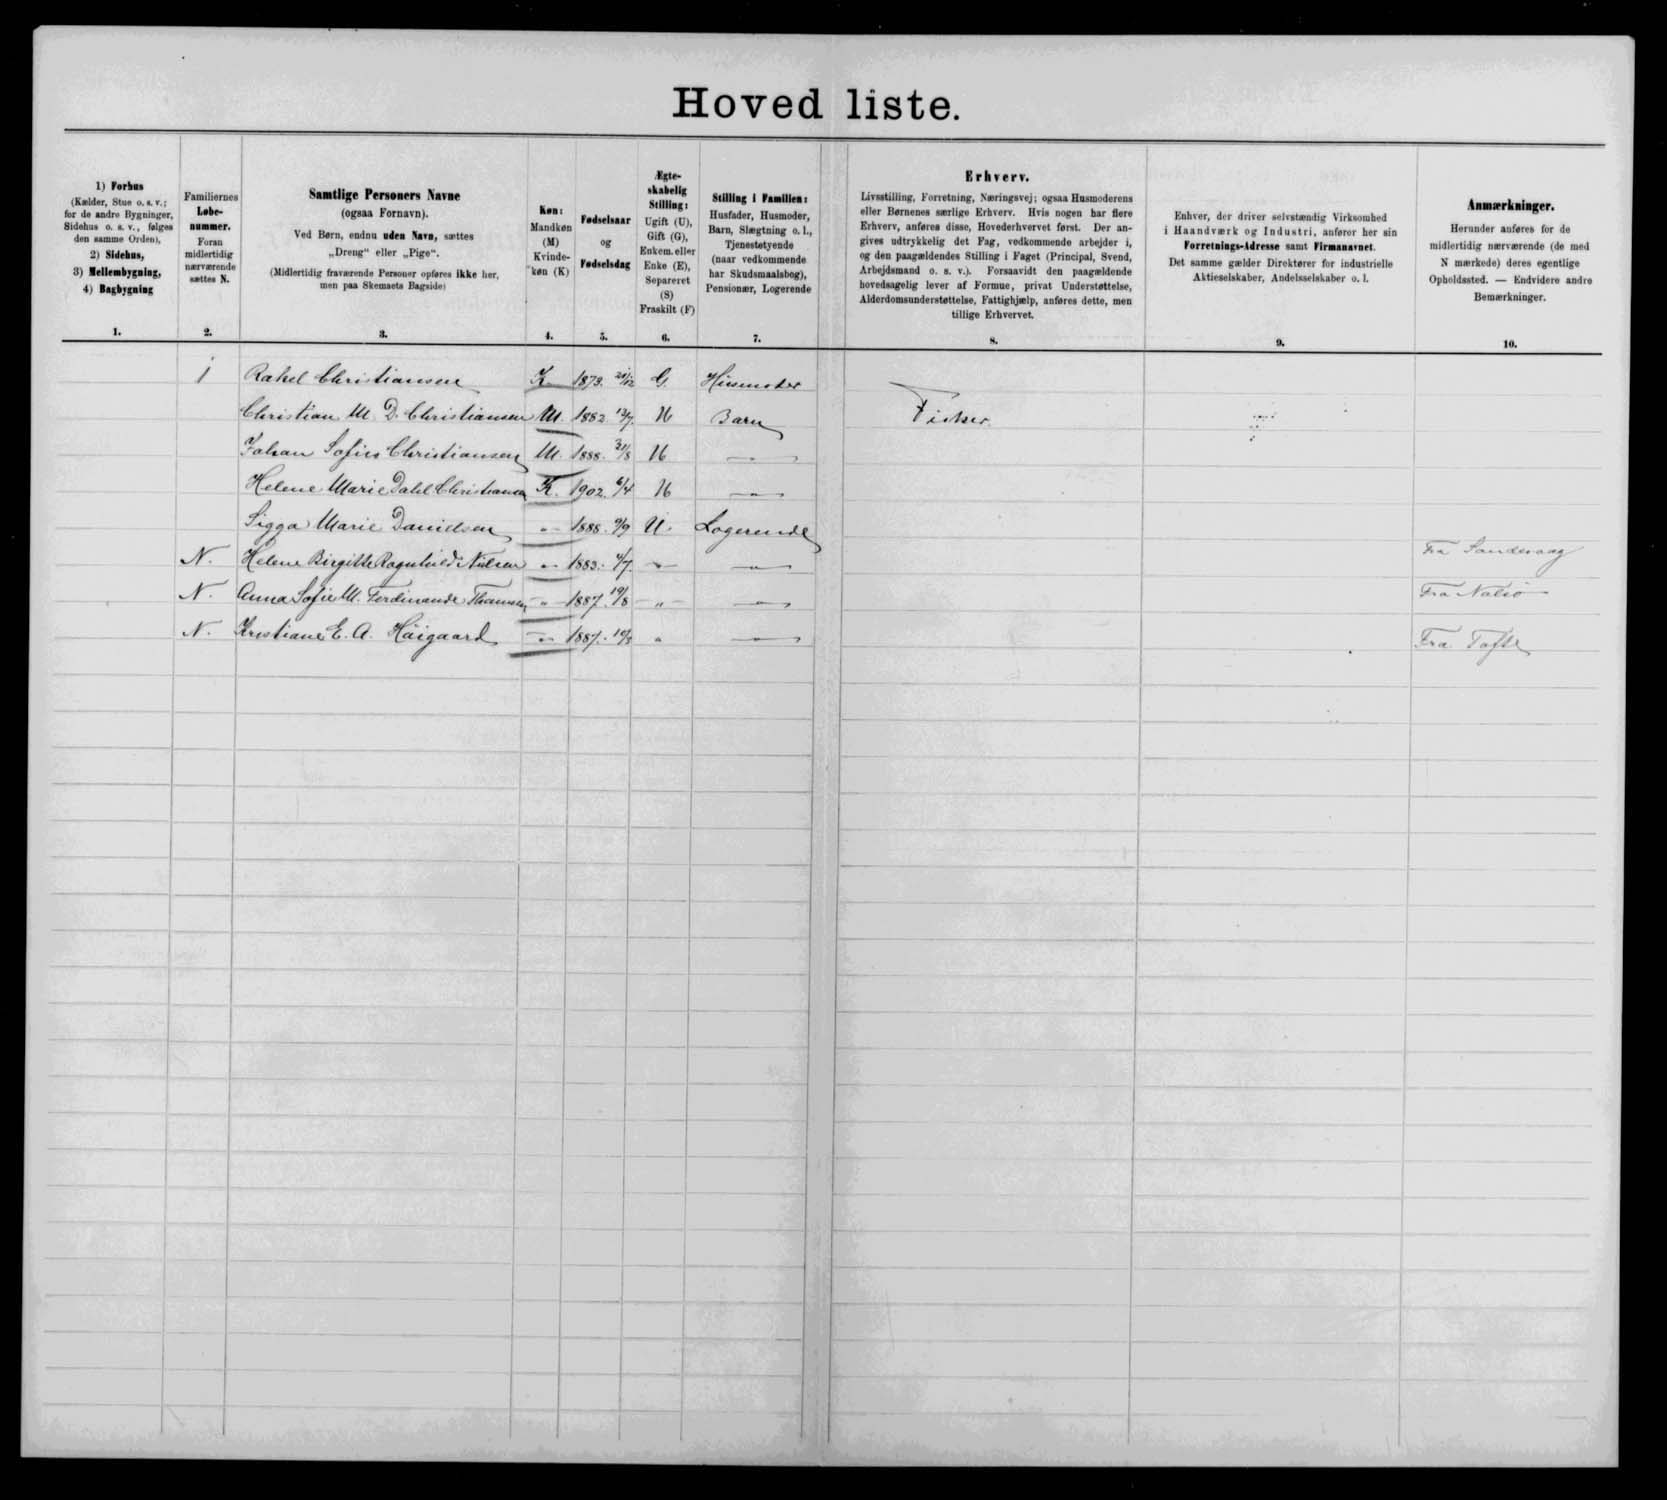 Hoved liste.
1) Forhus
(Kælder, Stue o. s. v.;
for de andre Bygninger,
Sidehus o. s. v., følges
den samme Orden),
2) Sidehus,
3) Mellembygning,
4) Bagbygning
1.
Familiernes
Løbe-
nummer.
Foran
midlertidig
nærværende
sættes N.
2.
Samtlige Personers Navne
(ogsaa Fornavn).
Ved Børn, endnu uden Navn, sættes
„Dreng“ eller „Pige“.
(Midlertidig fraværende Personer opføres ikke her,
men paa Skemaets Bagside)
3.
Køn:
Mandkøn
(M)
Kvinde-
køn (K)
4.
Fødselsaar
og
Fødselsdag
5.
Ægte-
skabelig
Stilling:
Ugift (U),
Gift (G),
Enkem. eller
Enke (E),
Separeret
(S)
Fraskilt (F)
6.
Stilling i Familien:
Husfader, Husmoder,
Barn, Slægtning o. l.,
Tjenestetyende
(naar vedkommende
har Skudsmaalsbog),
Pensionær, Logerende
7.
Erhverv.
Livsstilling, Forretning, Næringsvej; ogsaa Husmoderens
eller Børnenes særlige Erhverv. Hvis nogen har flere
Erhverv, anføres disse, Hovederhvervet først. Der an-
gives udtrykkelig det Fag, vedkommende arbejder i,
og den paagældendes Stilling i Faget (Principal, Svend,
Arbejdsmand o. s. v.). Forsaavidt den paagældende
hovedsagelig lever af Formue, privat Understøttelse,
Alderdomsunderstøttelse, Fattighjælp, anføres dette, men
tillige Erhvervet.
8.
Enhver, der driver selvstændig Virksomhed
i Haandværk og Industri, anfører her sin
Forretnings-Adresse samt Firmanavnet.
Det samme gælder Direktører for industrielle
Aktieselskaber, Andelsselskaber o. l.
9.
Anmærkninger.
Herunder anføres for de
midlertidig nærværende (de med
N mærkede) deres egentlige
Opholdssted. — Endvidere andre
Bemærkninger.
10.
1 Rakel Christiansen K 1873. 21/12 G. Husmoder
Christian M. D. Christiansen M. 1882 12/7. U Barn Fisker
Johan Sofus Christiansen M. 1888. 31/8 U —„—
Helene Marie Dahl Christiansen K. 1902. 6/4 U —„—
Sigga Marie Danielsen „ 1888. 9/9 U. Logerende
N. Helene Birgitte Ragnhild Nielsen „ 1883. 4/7. „ —„— Fra Sandevaag
N. Anna Sofie M. Ferdinande Thomsen „ 1887. 19/8 „ —„— Fra Nolsö
N. Kristiane E. A. Höigaard „ 1887. „ —„— Fra Tofte